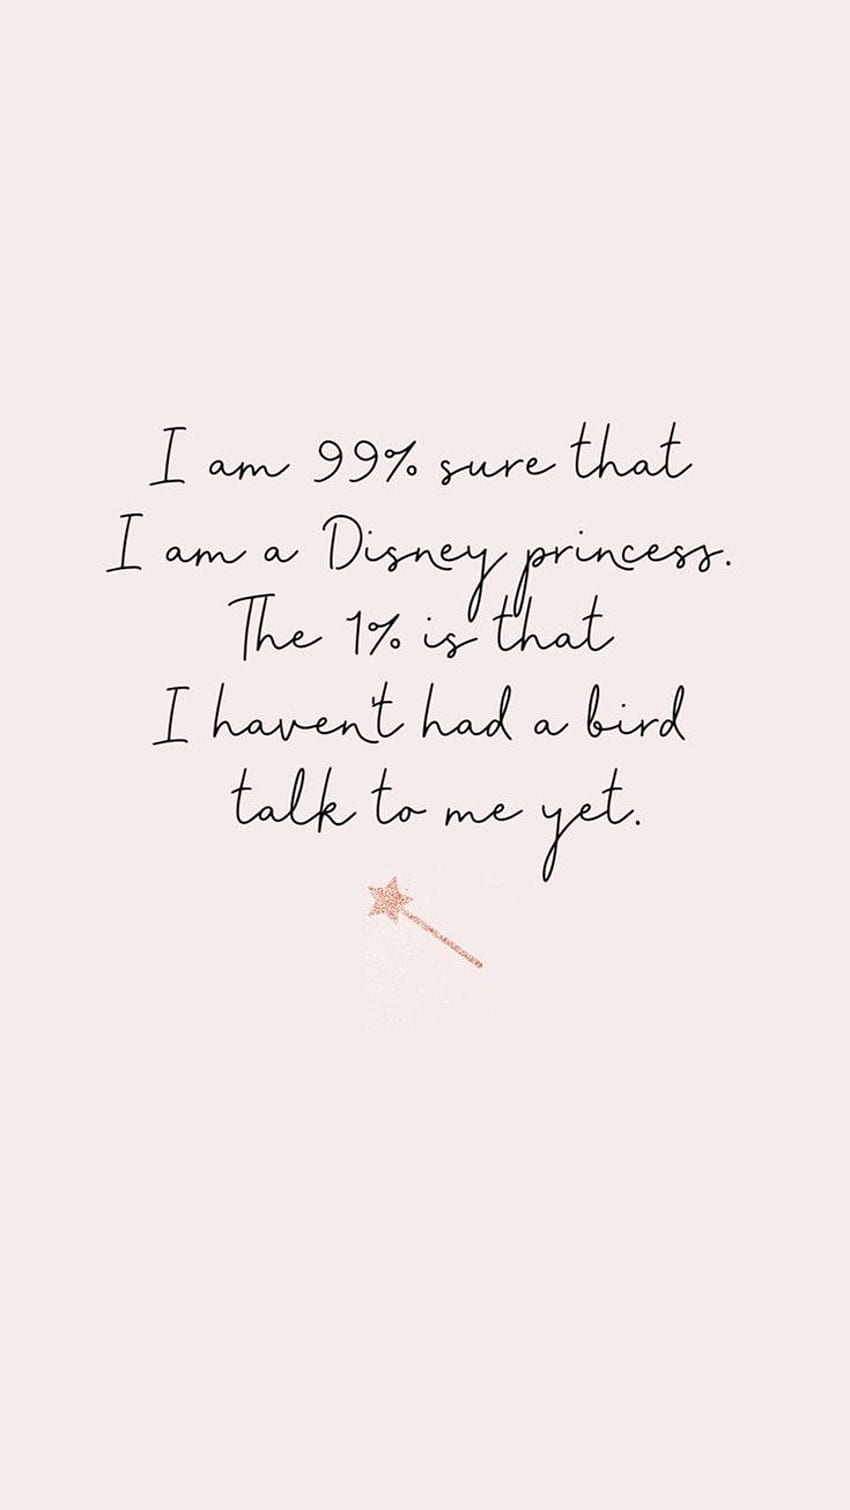 I am 99% sure that
I am a Disney princess.
The 1% is that
I haven't had a bird
talk to me yet.